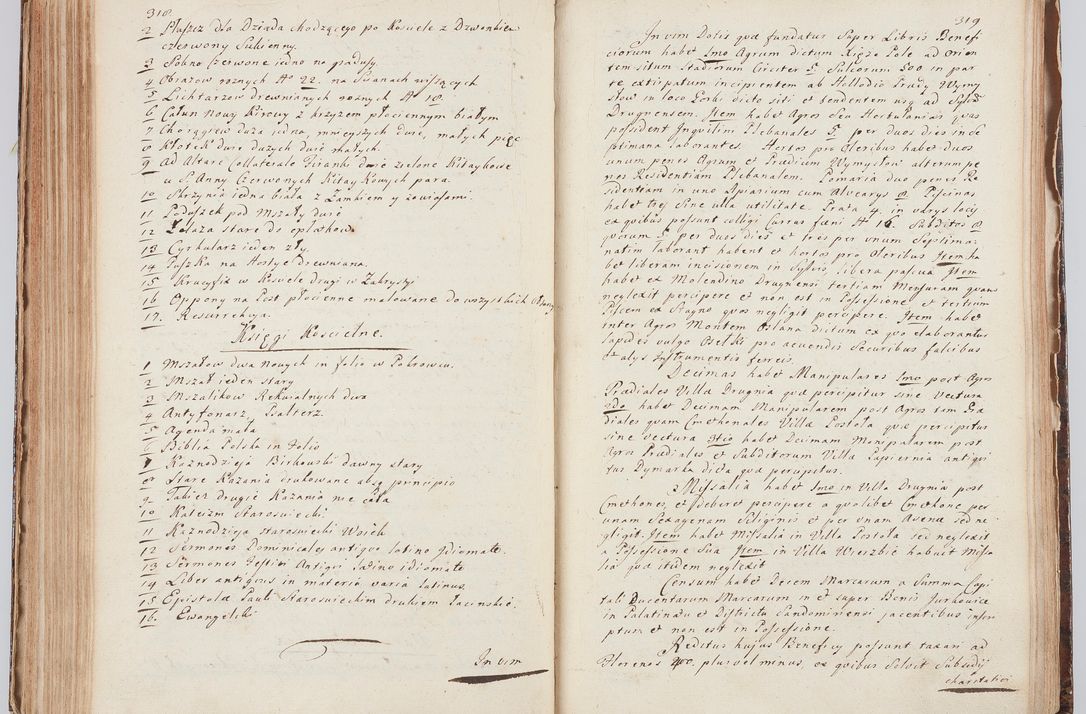 318.
2 Płaszcz dla Dziada chodzącego po Kosciele z Dzwonkiem
czerwony Sukienny.
3 Sukno czerwone iedno na padusy
4 Obrazow roznych N 22. na Scianach wiszących
5 Lichtarzow drewnianych roznych N 18.
6 Całun nowy Kirowy z krzyzem płociennym białym
7 Chorągiew duża iedna, mnieyszych dwie, małych pięc
8 Kłotek dwie dużych dwie małych.
9 Ad Altare Collaterale Firanki dwie zielone Kitaykowe
u S. Anny Czerwonych Kitaykowych para.
10 Skrzynia iedna biała z Zamkiem y zawiasami.
11 Poduszek pod Mszały dwie
12 Żelaza stare do opłatkow
13 Cyrkularz ieden zły.
14 Puszka na Hostye drewniana.
15 Krucyfix w Kosciele drugi w Zakrystyi
16 Oppony na Post płocienne malowane do wszystkich
17. Resurrekcya.
Księgi Koscielne.
1 Mszałow dwa Nowych in folio w Pokrowcu.
2 Mszał ieden stary
3 Mszalikow Rekwialnych dwa
4 Antyfonarz, Psałterz.
5 Agenda mała
6 Biblia Polska in Folio
7 Kaznodzieja Birkowski dawny stary
8 Stare Kazania drukowane absq principio
9 Także drugie Kazania nie całe
10 Kateizm Staroswiecki
11 Kaznodzieja staroswiecki Woick
12 Sermones Dominicales antiquo latino Idiomate.
13 Sermones Festivi Antiqui Latino idiomate
14 Liber antiquus in materia varia latinus.
15 Epistola Pauli Staroswieckim drukiem Łacinskie.
16. Ewangeliki
In vim
319
In vim Dotis quæ fundatur super Libris Benefi-
ciorum habet Imo Agrum dictum Xięże Pole ad Orien
tem situm Stadiorum Circiter 5. Sulcorum 500 in par
te extirpatum incipientem ab Hallodio Prædij Wymy
słow in loco Gorki dicto siti et tendentem usq ad Sylvam
Drugnensem. Item habet Agros Seu Hortulanias quas
possident Inquilini Plebanales 5 per duos dies in Se
ptimana laborantes. Hortos pro Oleribus habet duos
unum penes Agrum et Prædium Wymysłow alterum pe
nes Residentiam Plebanalem. Pomaria duo penes Re
sidentiam in uno Apiarium cum Alvearys 8 Piscinas
habet trej Sine ulla utilitate. Prata 4. in varys locis
ex quibus possunt colligi Currus fœni N 18. Subditos 8
quorum 5 per duos dies et tres per unum Septima-
natim laborant habent et hortos pro Oleribus Item ha
bet liberam incisionem in Sylvis, libera pascua Item
habet ex Molendino Drugnensi tertiam Mensuram quam
neglexit percipere et non est in Possessione et tertium
Piscem ex Stagno quos negligit percipere. Item habet
inter Agros Montem Oslana dictum ex quo elaborantur
lapides vulgo Osełki pro acuendis Securibus falcibus
et alys Instrumentis ferreis.
Decimas habet Manipulares Imo post Agros
Prædiales Villæ Drugnia quæ percipitur sine vectura
2do habet Decimam Manipularem post Agros tam Præ
diales quam Cmethonales Villæ Postola quæ percipitur
sine vectura 3tio habet Decimam Manipularem post
Agros Prædiales et Subditorum Villæ Papiernia antiqui
tus Dymarka dicta quæ percipitur.
Missalia habet Imo in Villa Drugnia post
Cmethones, et deberet percipere a quolibet Cmethone per
unam Sexagenam Siliginis et per unam Avenæ sed ne-
gligit. Item habet Missalia in Villa Postola sed neglexit
a Possessione Sua Item in Villa Wierzbie habuit Missa
lia quæ itidem neglexit
Censum habet Decem Marcarum a Summa Capi
tali Ducentarum Marcarum in et super Bonis Jurkowice
in Palatinatu et Districtu Sandomiriensi jacentibus inscri
ptum et non est in Possessione.
Reditus hujus Beneficy possunt taxari ad
Florenos 400. plus vel minus, ex quibus Solvit Subsidij
charitativi